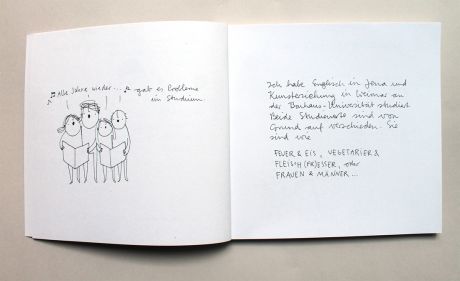 ♫ Alle Jahre wieder... ♫ gab es Probleme
im Studium.
Ich habe Englisch in Jena und
Kunsterziehung in Weimar an
der Bauhaus-Universität studiert.
Beide Studienorte sind von
Grund auf verschieden. Sie
sind wie
FEUER & EIS, VEGETARIER &
FLEISCH(FR)ESSER, oder
FRAUEN & MÄNNER...